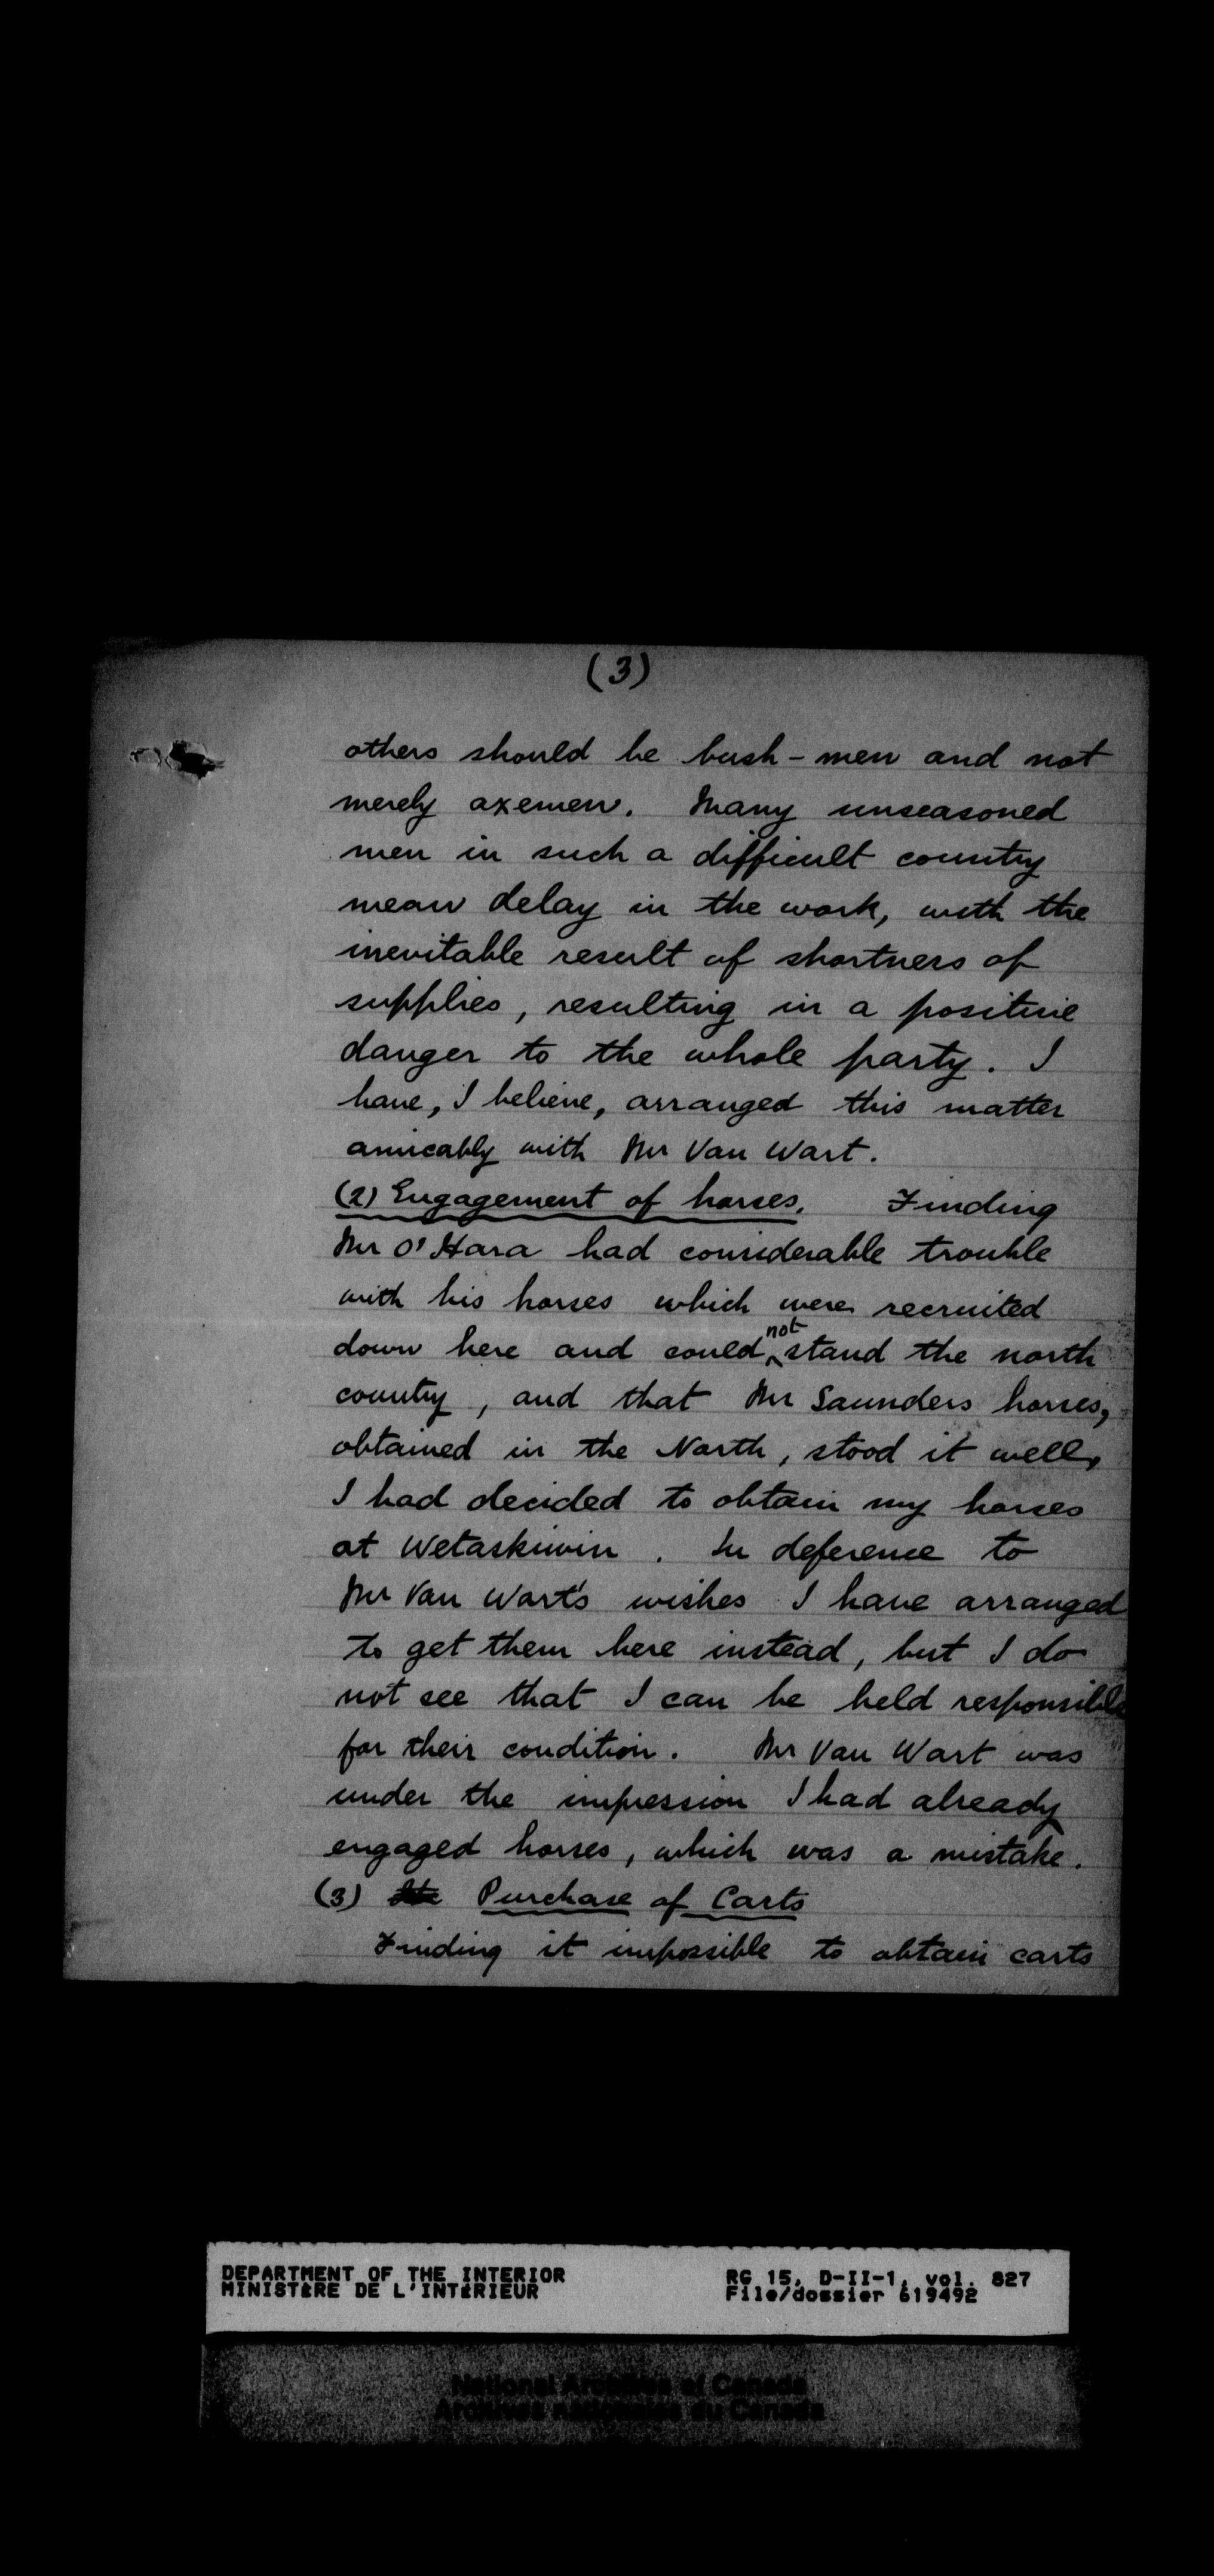 (3)
others should be bush-men and not
merely axemen. Many unseasoned
men in such a difficult country
mean delay in the work, with the
inevitable result of shortness of
supplies, resulting in a positive
danger to the whole party. I
have, I believe, arranged this matter
amicably with Mr Van Wart.
(2) Engagement of horses. Finding
Mr O'Hara had considerable trouble
with his horses which were recruited
down here and could not stand the north
country, and that Mr Saunders horses,
obtained in the North, stood it well,
I had decided to obtain my horses
at Wetaskiwin. In deference to
Mr Van Wart's wishes I have arranged
to get them here instead, but I do
not see that I can be held responsible
for their condition. Mr Van Wart was
under the impression I had already
engaged horses, which was a mistake.
(3) Purchase of Carts
Finding it impossible to obtain carts
DEPARTMENT OF THE INTERIOR RG 15, D-II-1, vol. 827
MINISTÈRE DE L'INTÉRIEUR File/dossier 619492
National Archives of Canada
Archives nationales du Canada